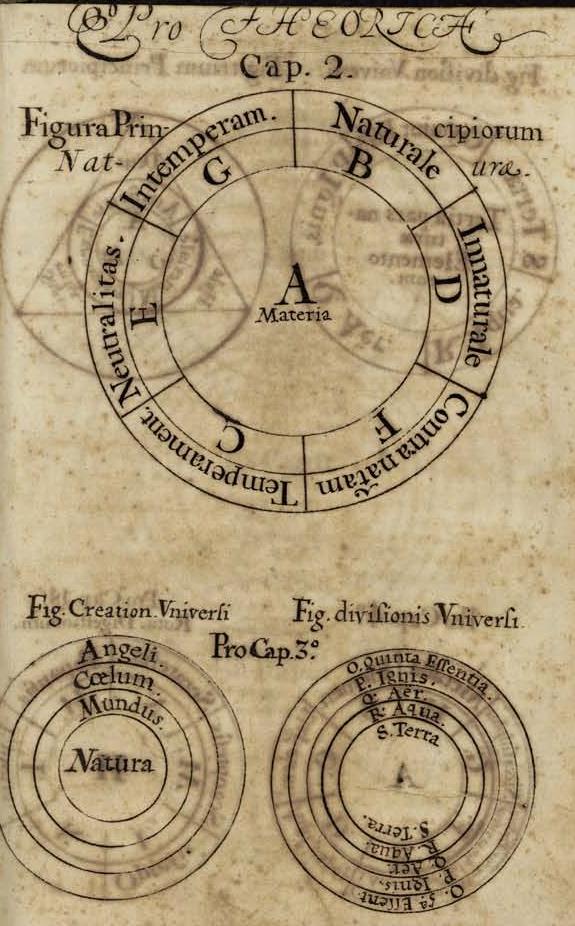 Pro THEORICÆ
Cap. 2.
Figura Prin-
cipiorum
Nat-
uræ.
Intemperam.
G
Naturale
B
Innaturale
D
Contra nãtam
F
Temperament.
C
Neutralitas.
E
A
Materia
Fig. Creation Vniverſi
Fig. diviſionis Vniverſi.
Pro Cap. 3º
Angeli.
Cœlum.
Mundus.
Natura
O. Quinta Eſſentia.
P. Ignis.
Q. Aër.
R. Aqua.
S. Terra
A
S. Terra.
R. Aqua.
Q. Aer.
P. Ignis.
O. 5ª Eſſent.